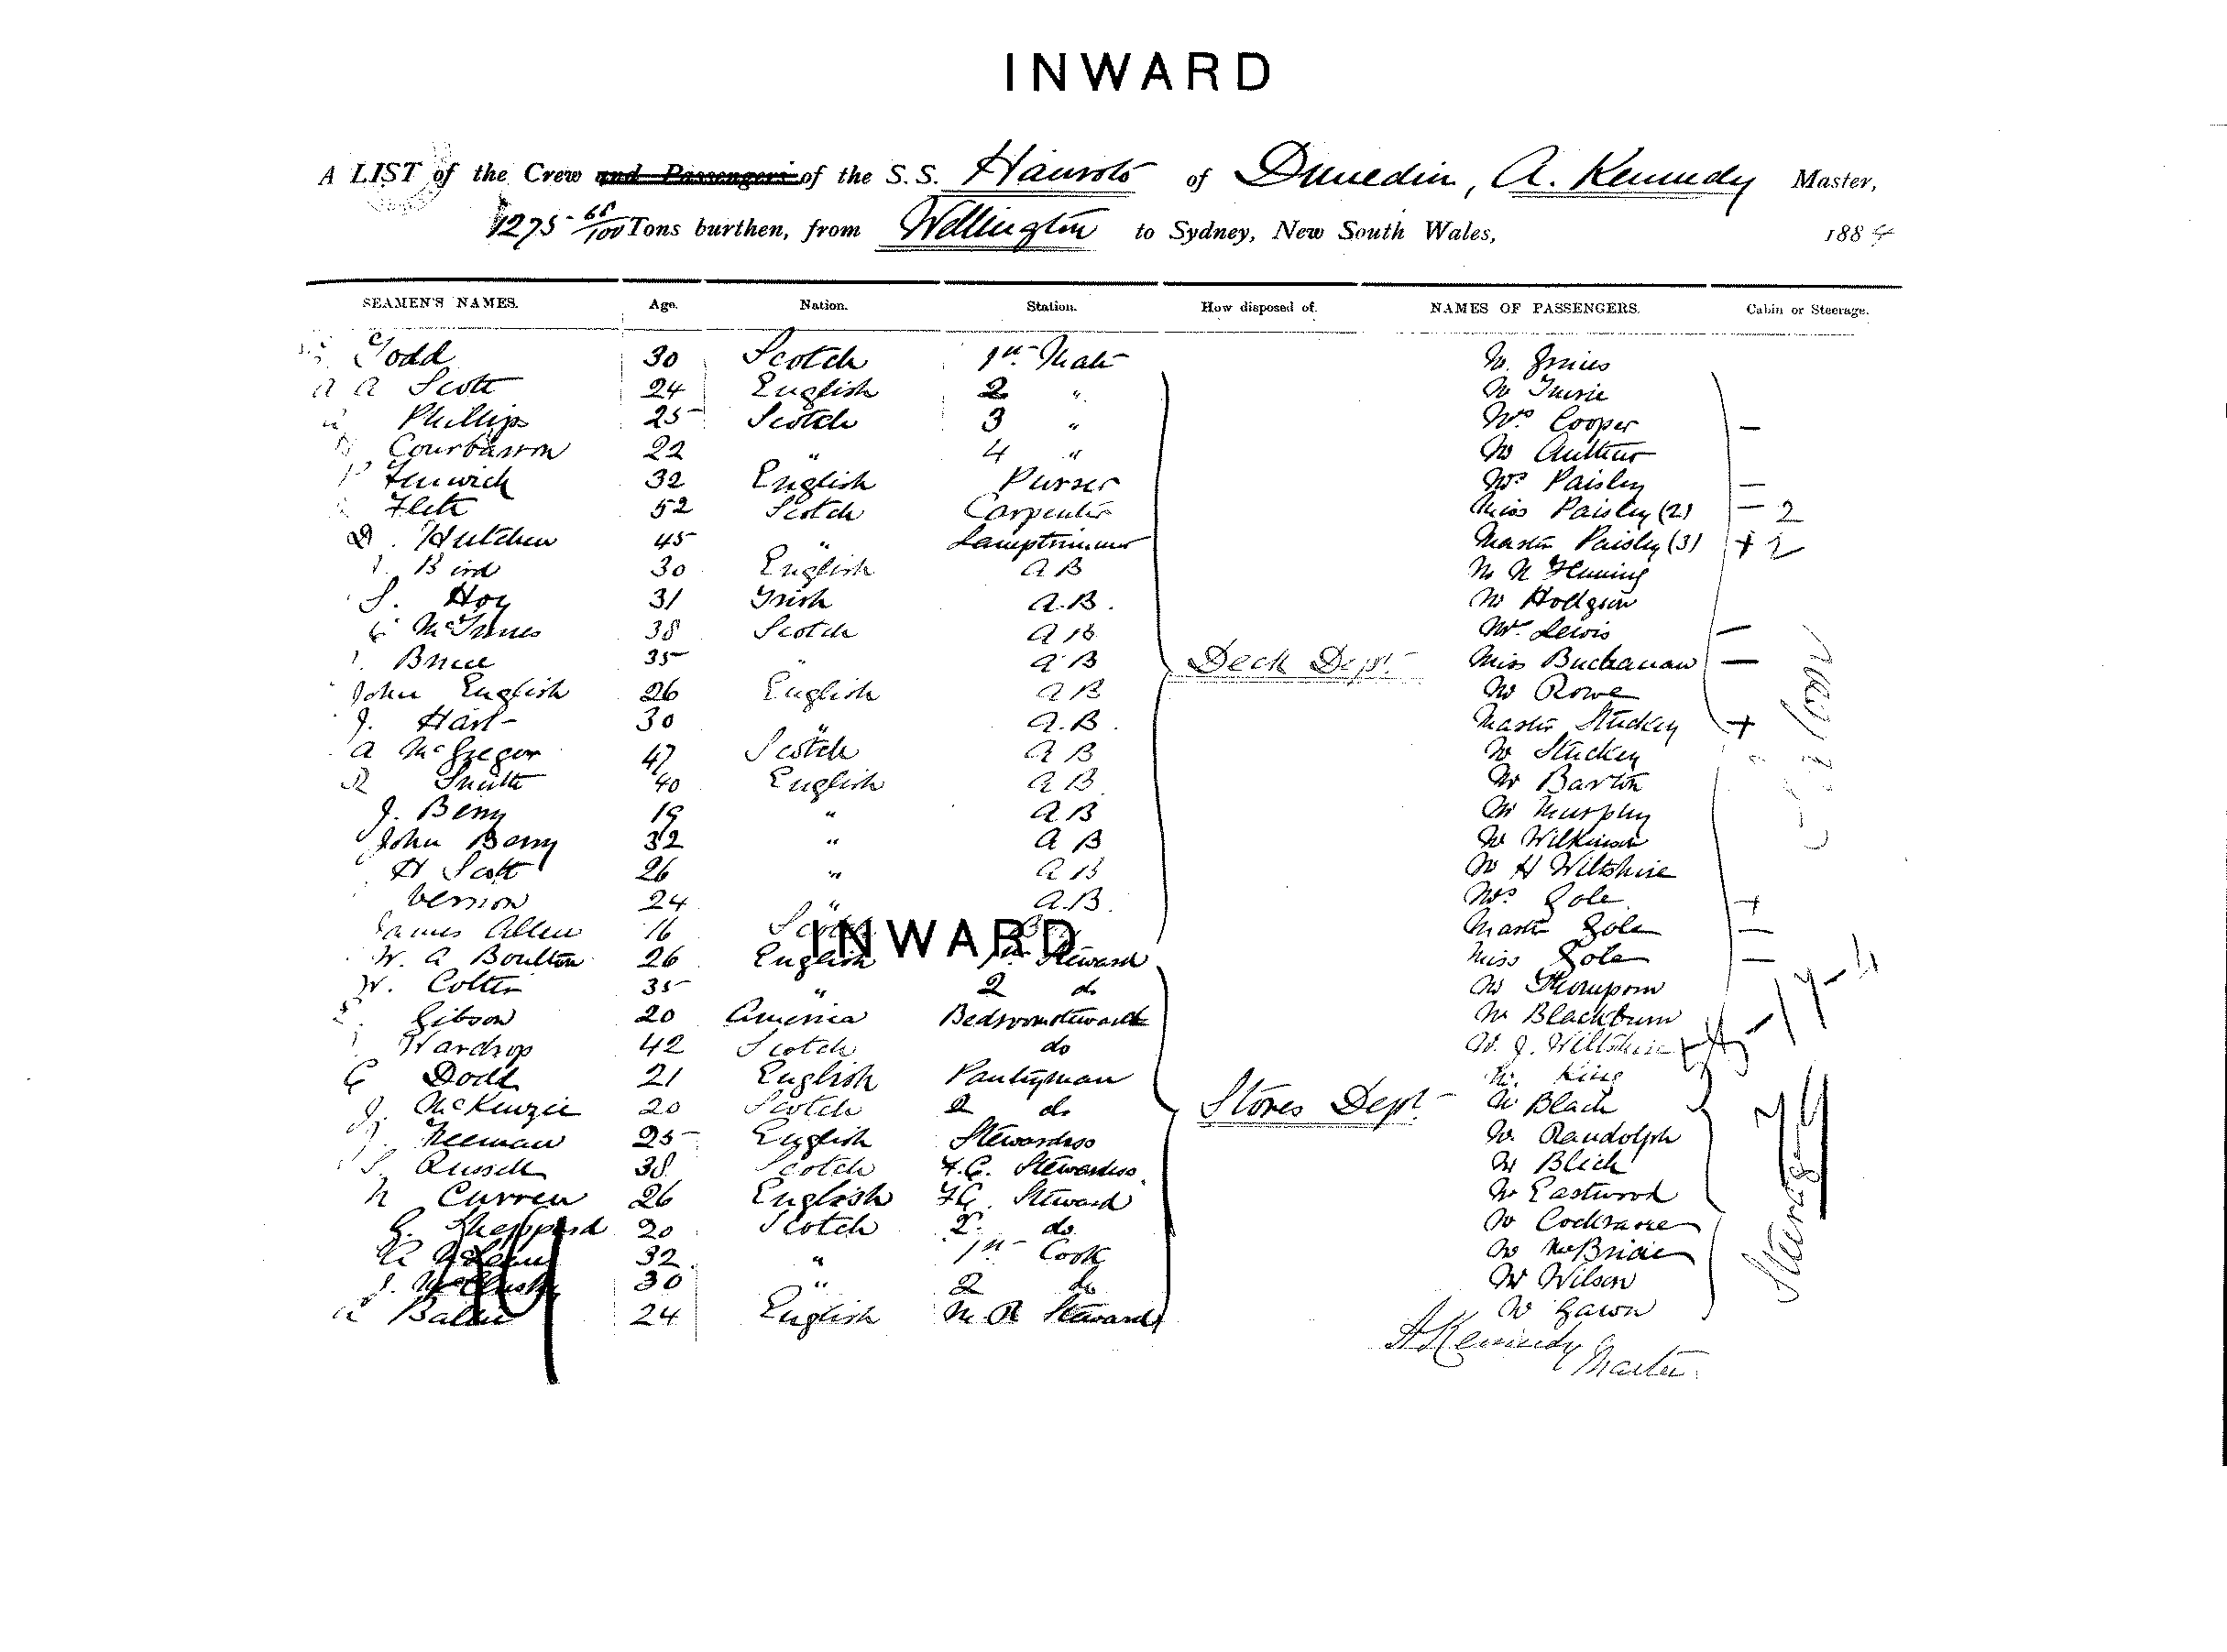 INWARD
A LIST of the Crew and Passengers of the S.S. Hauroto of Dunedin, A. Kennedy Master,
1275 68/100 Tons burthen, from Wellington to Sydney, New South Wales, 1884
SEAMEN'S NAMES. Age. Nation. Station. How disposed of. NAMES OF PASSENGERS. Cabin or Steerage.
Todd 30 Scotch 1st Mate Mr. Innies
A A Scott 24 English 2 " Mr
Phillips 25 Scotch 3 " Mrs Cooper —
22 " 4 " Mr
Fenwick 32 English Purser Mrs Paisley —
Flett 52 Scotch Carpenter Miss Paisley (2) — 2
D. Hutchen 45 " Lamptrimmer Master Paisley (3) + 2
Bird 30 English AB Mr N Fleming
S. Hoy 31 Irish A.B. Mr Hodgson
McInnes 38 Scotch AB Mr. Lewis —
Bruce 35 " AB Deck Dept. Miss Buchanan —
John English 26 English AB Mr Rowe
J. Hart 30 " A.B. Master Stuckey +
A McGregor 47 Scotch AB Mr Stuckey
R Smith 40 English AB Mr Barton
J. Berry 19 " AB Mr Murphy
John Berry 32 " AB Mr Wilkinson
H Scott 26 " AB Mr H Wiltshire
Vernon 24 " A.B. Mrs Gole +
James Allen 16 Scotch Master Gole —
INWARD
W. A Boulton 26 English 1st Steward Miss Gole —
W. Cotter 35 " 2 do Mr Thompson
Gibson 20 America Bedroomsteward Mr Blackburn
Wardrop 42 Scotch do Mr. J. Wiltshire
G Dodd 21 English Pantryman Mr. King
J. McKenzie 20 Scotch 2 do Stores Dept. Mr Black
Neeman 25 English Stewardess Mr. Randolph
S. Russell 38 Scotch F.C. Stewardess Mr Blick
N Curren 26 English F.C. Steward Mr Eastwood
G. Sheppard 20 Scotch 2 do Mr Cochrane
32 " 1st Cook Mr McBride
30 " 2 do Mr Wilson
24 English M.R Steward Mr Gawn
Saloon
Steerage
A Kennedy
Master.